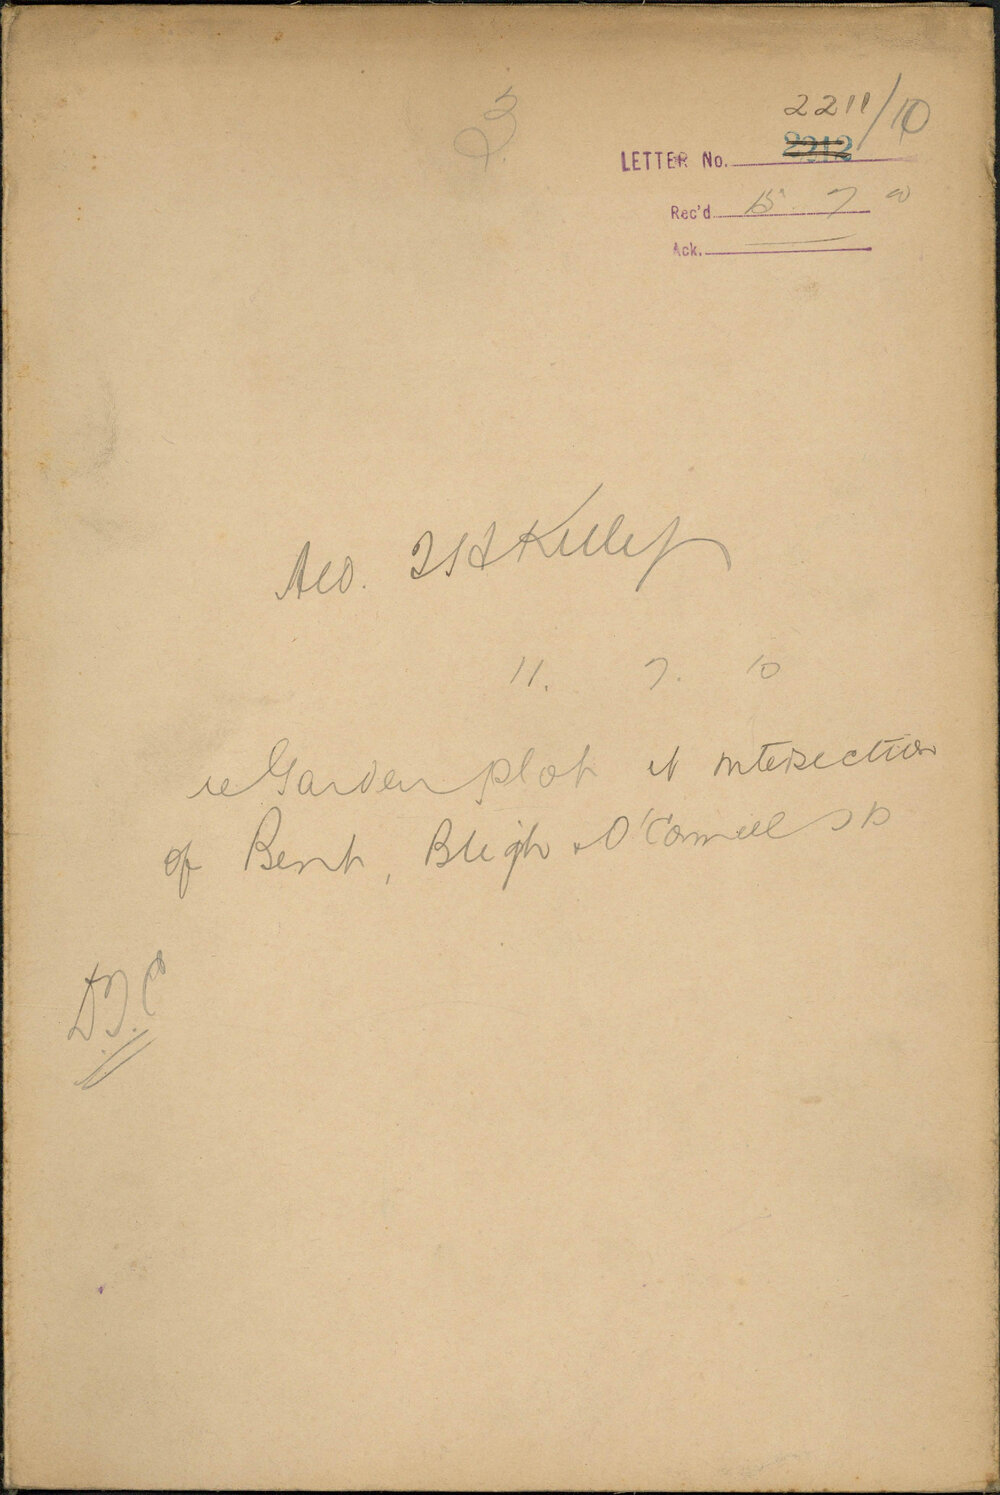 23
2211/10
LETTER No. 2212
Rec'd 15. 7
Ack.
11. 7. 10
re Garden plot at intersection
of Bent, Bligh & O'Connell Sts